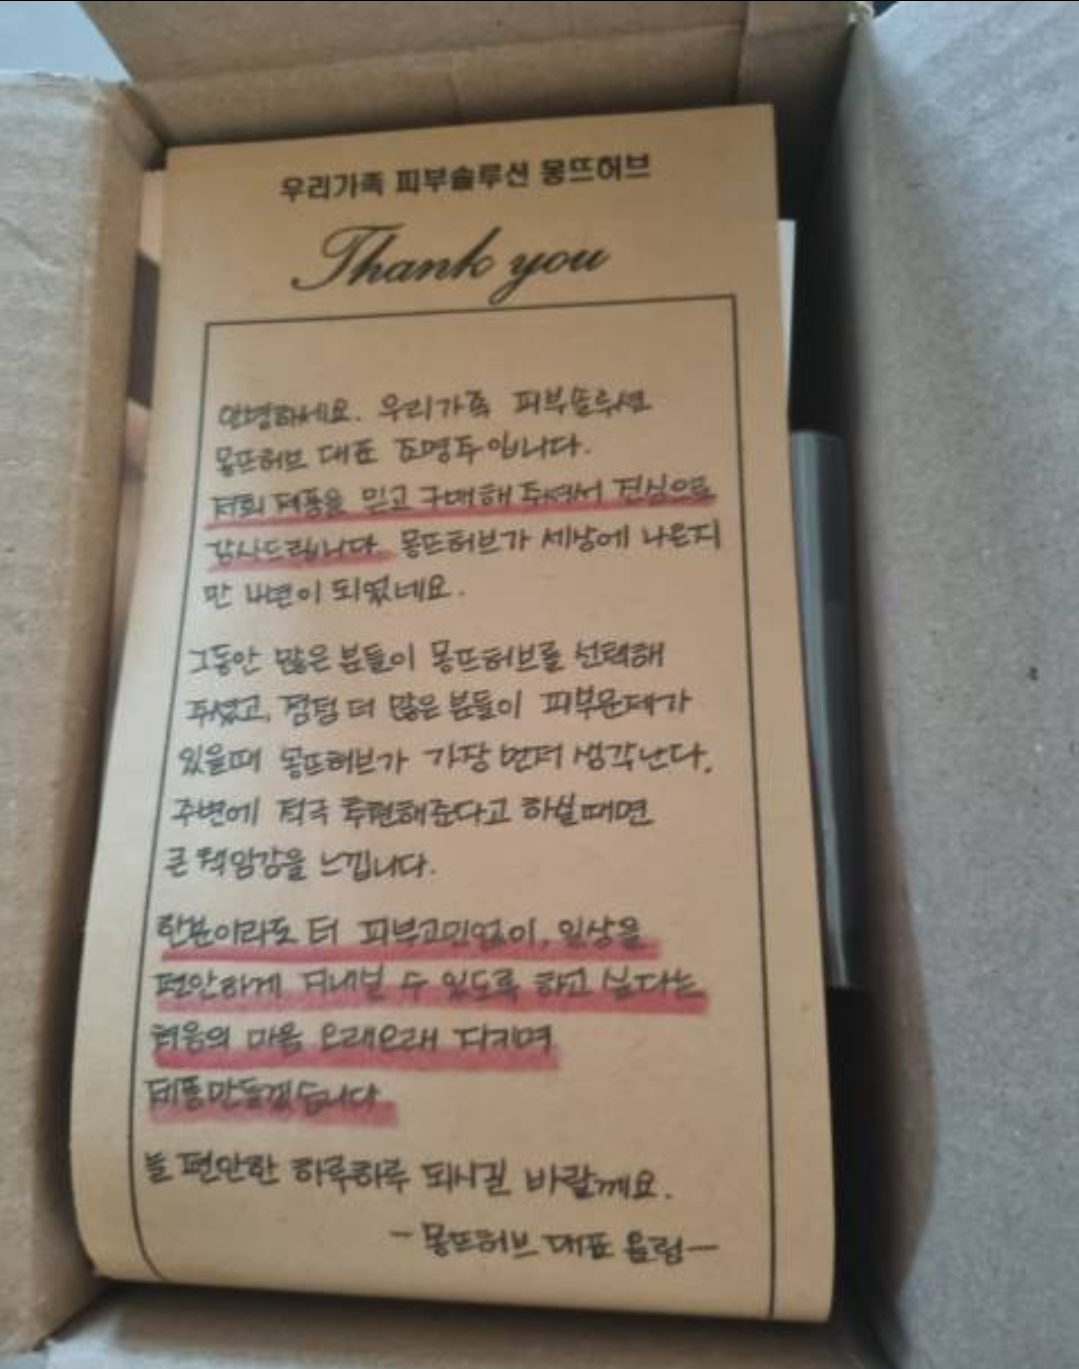 우리가족 피부솔루션 몽뜨허브
Thank you
안녕하세요. 우리가족 피부솔루션
몽뜨허브 대표 조명주입니다.
저희 제품을 믿고 구매해 주셔서 진심으로
감사드립니다. 몽뜨허브가 세상에 나온지
만 4년이 되었네요.
그동안 많은 분들이 몽뜨허브를 선택해
주셨고, 점점 더 많은 분들이 피부문제가
있을때 몽뜨허브가 가장 먼저 생각난다,
주변에 적극 추천해준다고 하실때면
큰 책임감을 느낍니다.
한분이라도 더 피부고민없이, 일상을
편안하게 지내실 수 있도록 하고 싶다는
처음의 마음 오래오래 지키며
제품만들겠습니다
늘 편안한 하루하루 되시길 바랄께요.
-몽뜨허브 대표